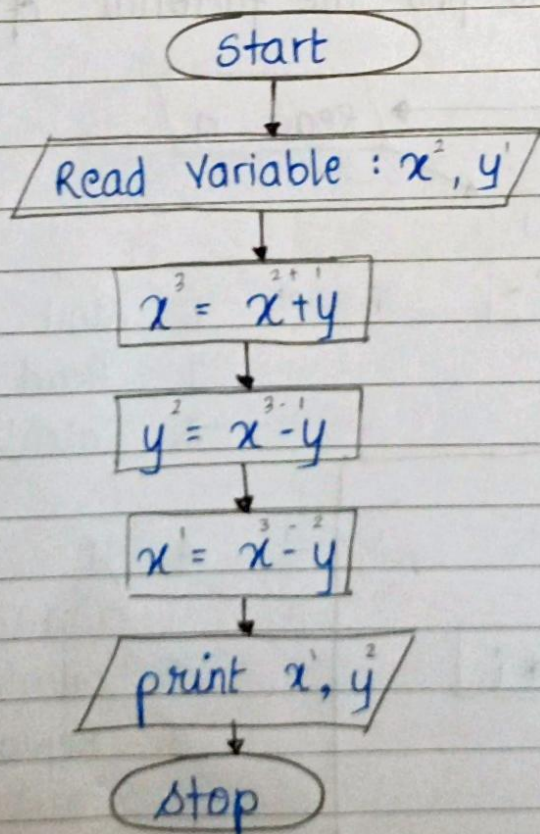 Start
Read Variable : x², y¹
x³ = x²⁺y¹
y² = x³⁻y¹
x¹ = x³⁻y²
print x¹, y²
Stop